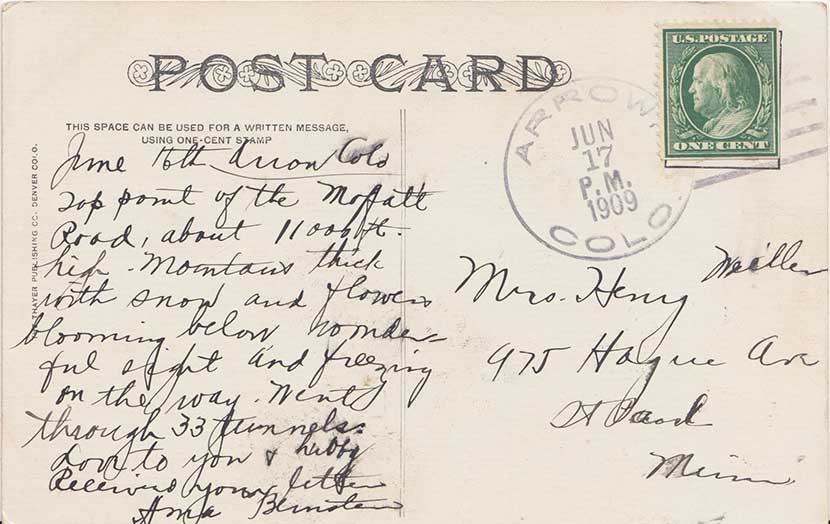 POST CARD
THIS SPACE CAN BE USED FOR A WRITTEN MESSAGE,
USING ONE-CENT STAMP
THAYER PUBLISHING CO. DENVER COLO.
June 16th Arrow Colo
Top point of the Moffatt
Road, about 11000 ft.
high. Mountains thick
with snow and flowers
blooming below wonder-
ful sight and freezing
on the way. Went
through 33 tunnels.
Love to you & hubby
Received your letter
Bernstein
U.S. POSTAGE
ONE CENT
ARROW,
JUN
17
P.M.
1909
COLO.
Mrs. Henry Weiller
975 Hague Ave
St Paul
Minn